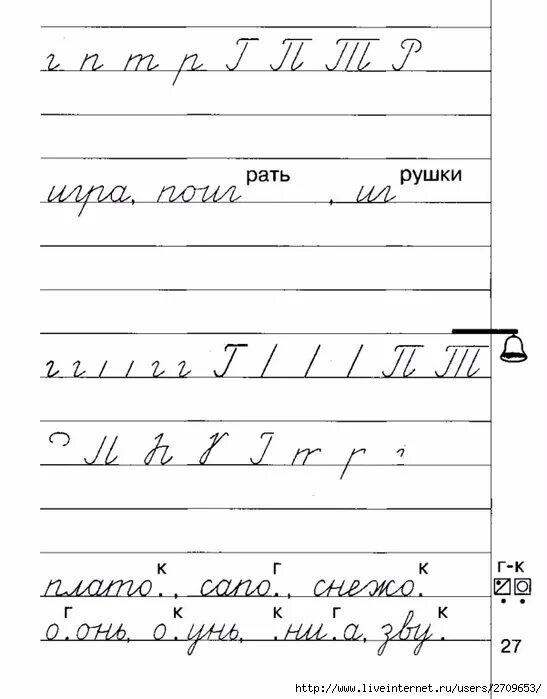 г п т р Г П Т Р
игра, поиграть, игрушки
г г г г Г П Т
г-к
к г к
плато., сапо., снежо.
г к к г к
о.онь, о.унь, .ни.а, зву.
27
http://www.liveinternet.ru/users/2709653/